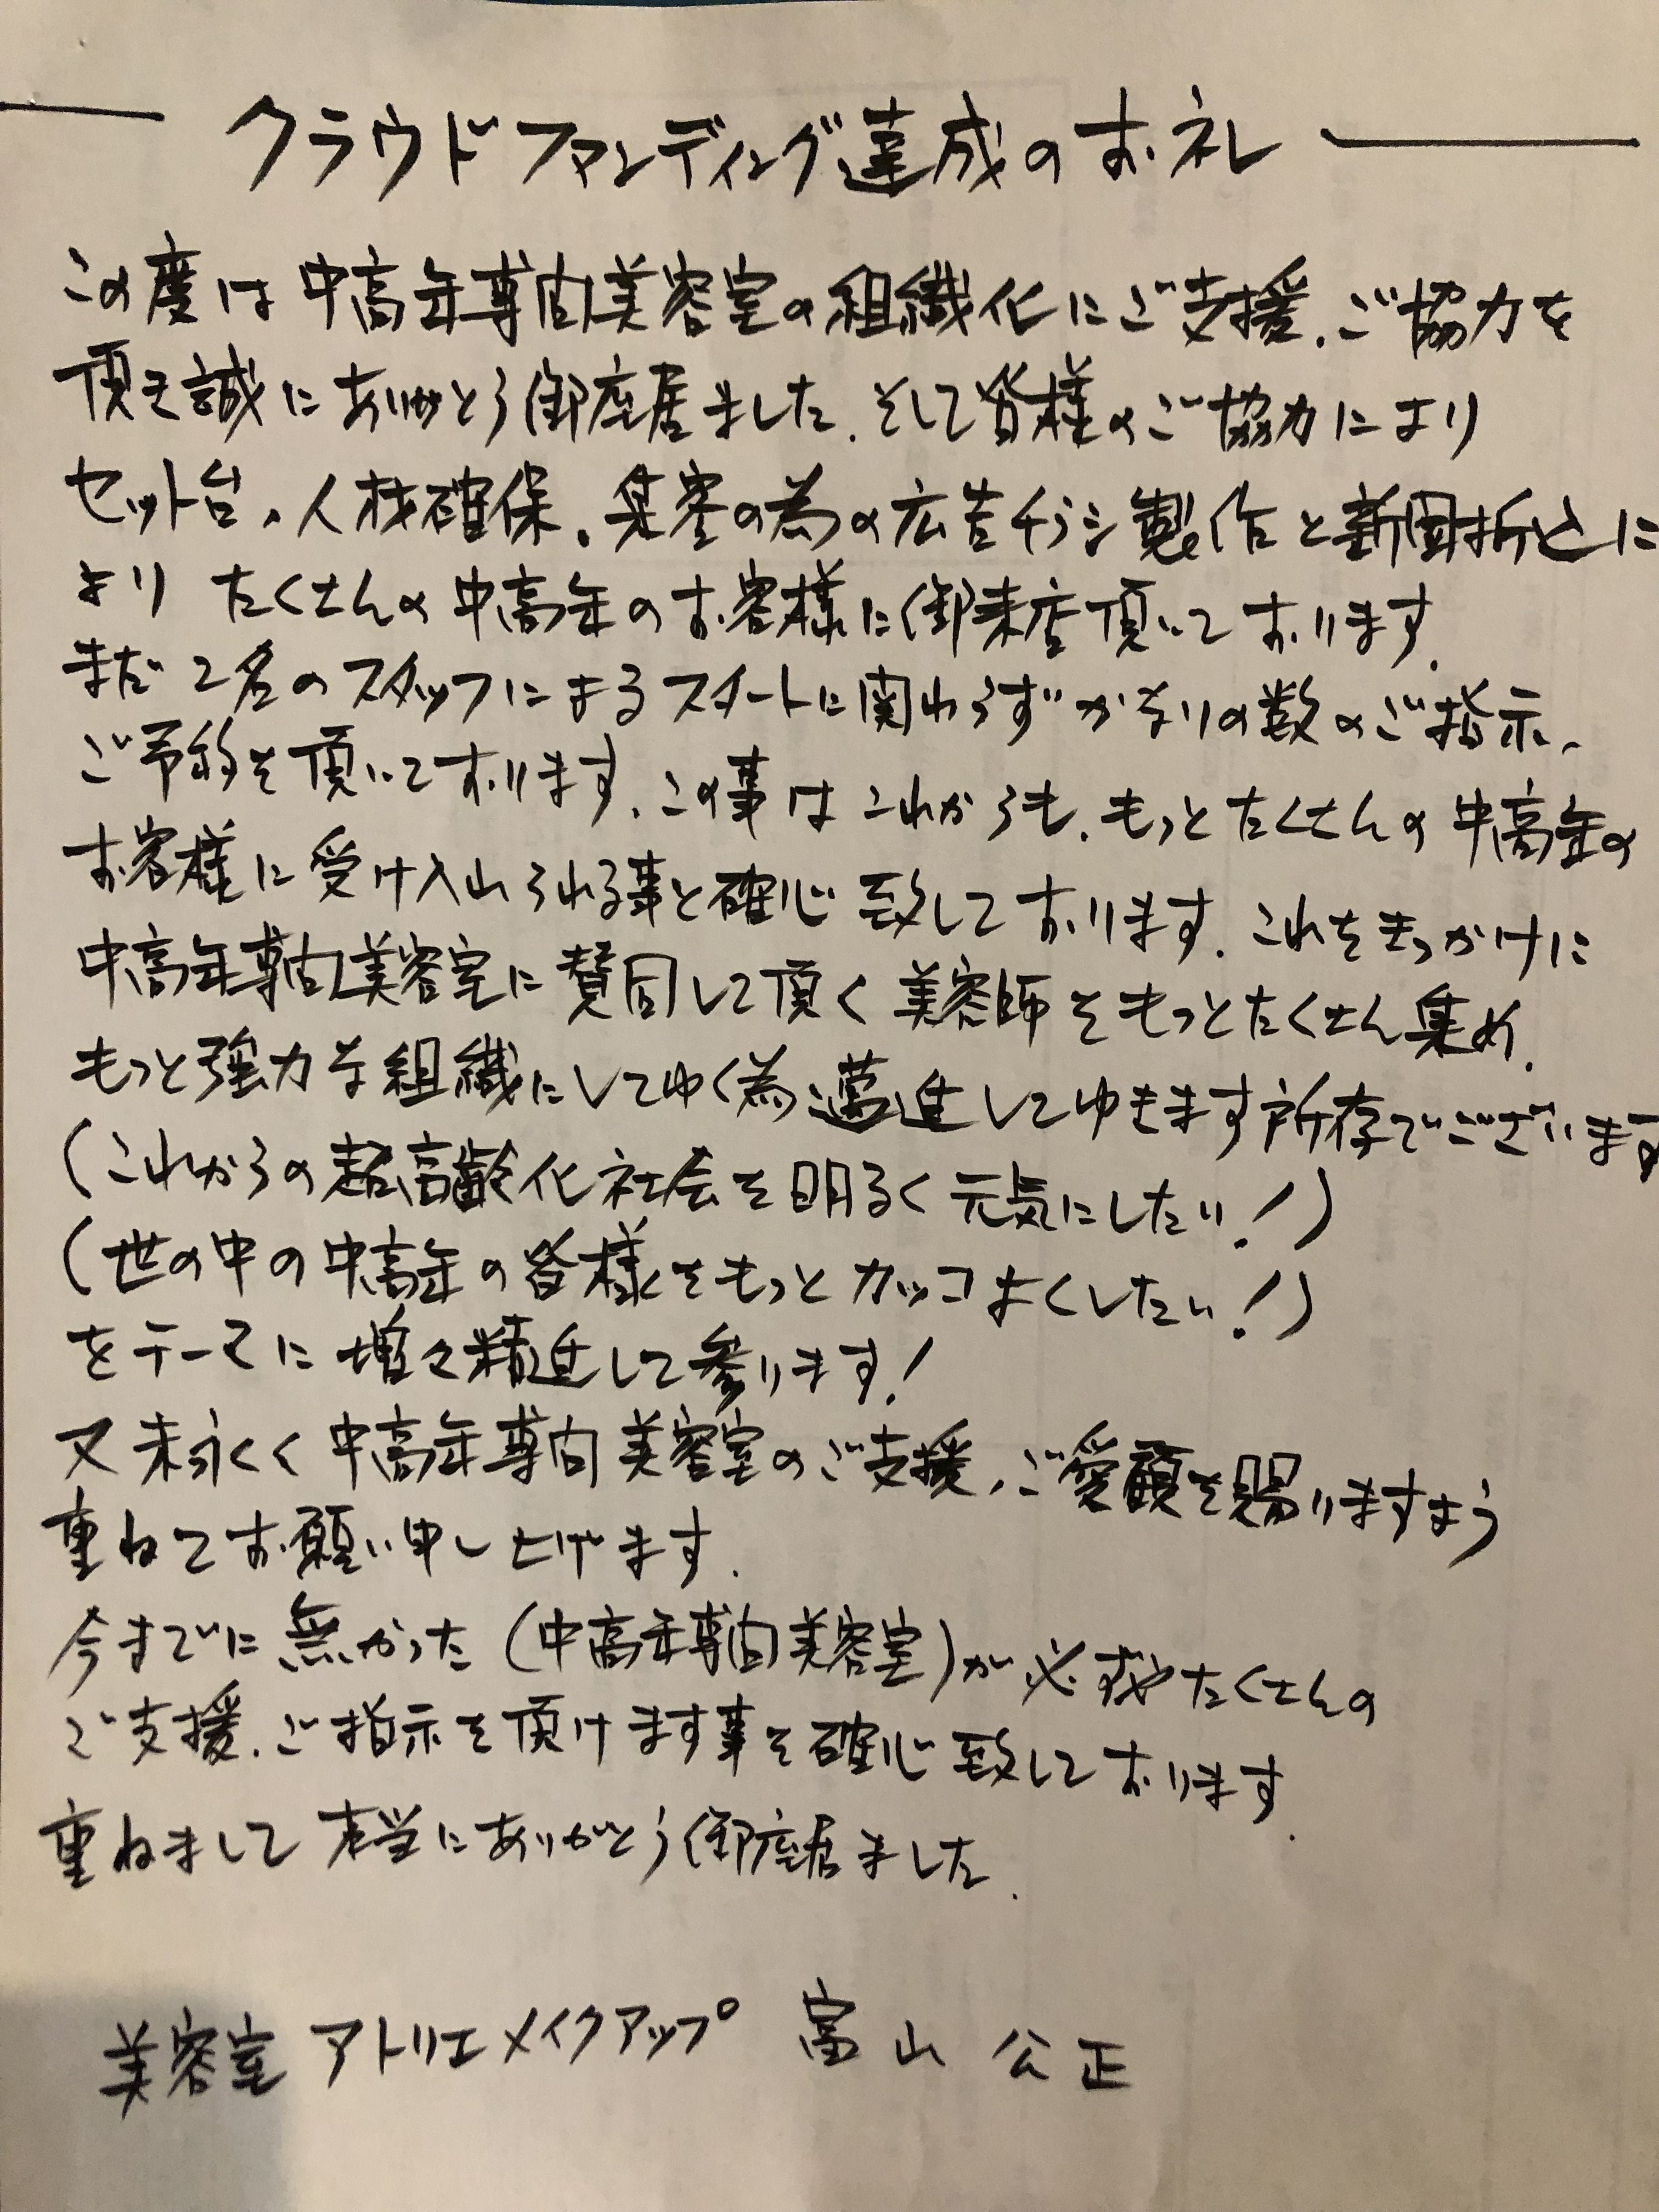 クラウドファンディング達成のお礼
この度は中高年専門美容室の組織化にご支援、ご協力を
頂き誠にありがとう御座居ました。そして皆様のご協力により
セット台、人材確保、集客の為の広告チラシ製作と新聞折込に
より たくさんの中高年のお客様に御来店頂いております。
まだ2名のスタッフによるスタートに関わらずかなりの数のご指示、
ご予約を頂いております。この事はこれからも、もっとたくさんの中高年の
お客様に受け入れられる事と確心致しております。これをきっかけに
中高年専門美容室に賛同して頂く美容師をもっとたくさん集め、
もっと強力な組織にしてゆく為邁進してゆきます所存でございます
(これからの超高齢化社会を明るく元気にしたい!)
(世の中の中高年の皆様をもっとカッコよくしたい!)
をテーマに増々精進して参ります!
又末永くく中高年専門美容室のご支援、ご愛顧を賜りますよう
重ねてお願い申し上げます。
今までに無かった(中高年専門美容室)が必ずやたくさんの
ご支援、ご指示を頂けます事を確心致しております。
重ねまして本当にありがとう御座居ました。
美容室 アトリエメイクアップ 富山 公正